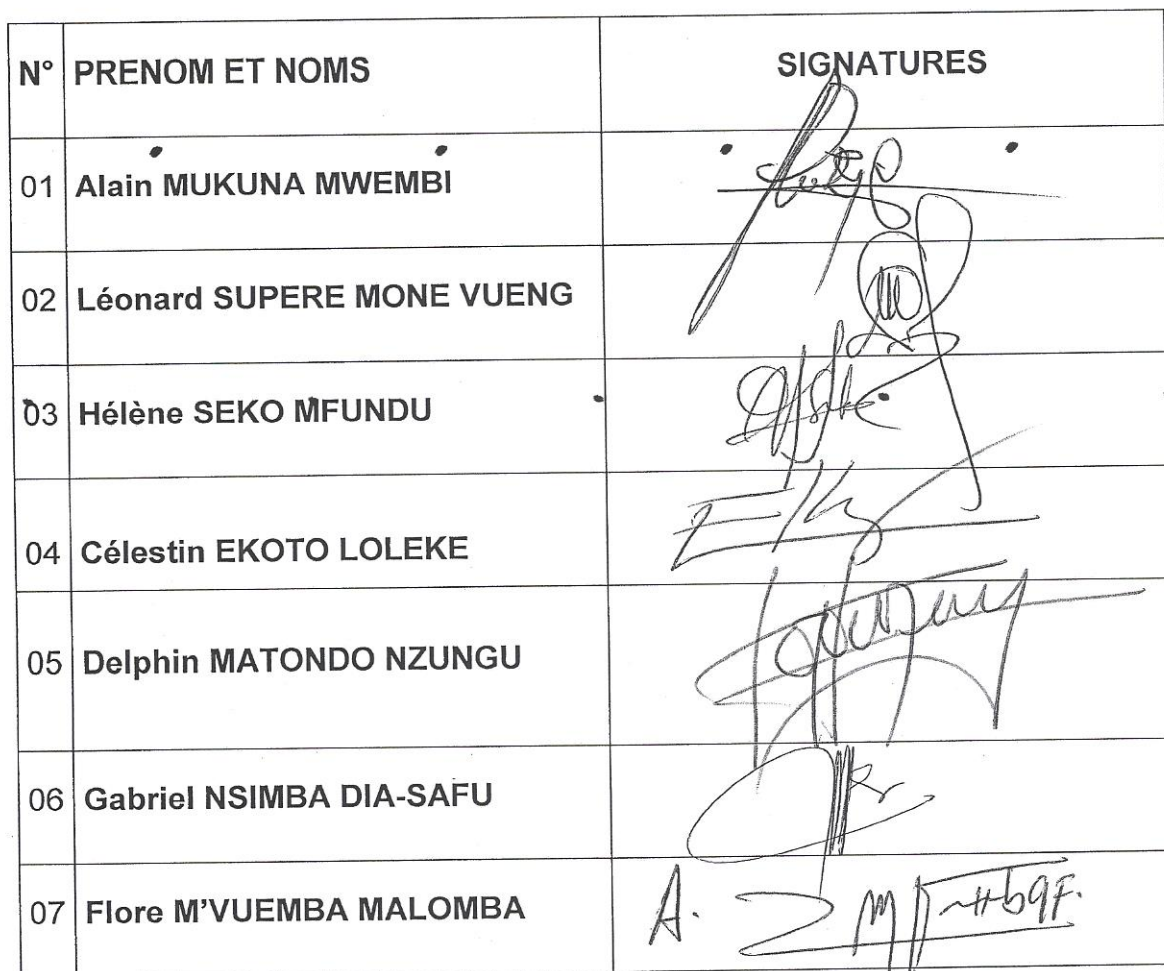 N° PRENOM ET NOMS SIGNATURES
01 Alain MUKUNA MWEMBI
02 Léonard SUPERE MONE VUENG
03 Hélène SEKO MFUNDU
04 Célestin EKOTO LOLEKE
05 Delphin MATONDO NZUNGU
06 Gabriel NSIMBA DIA-SAFU
07 Flore M'VUEMBA MALOMBA A.